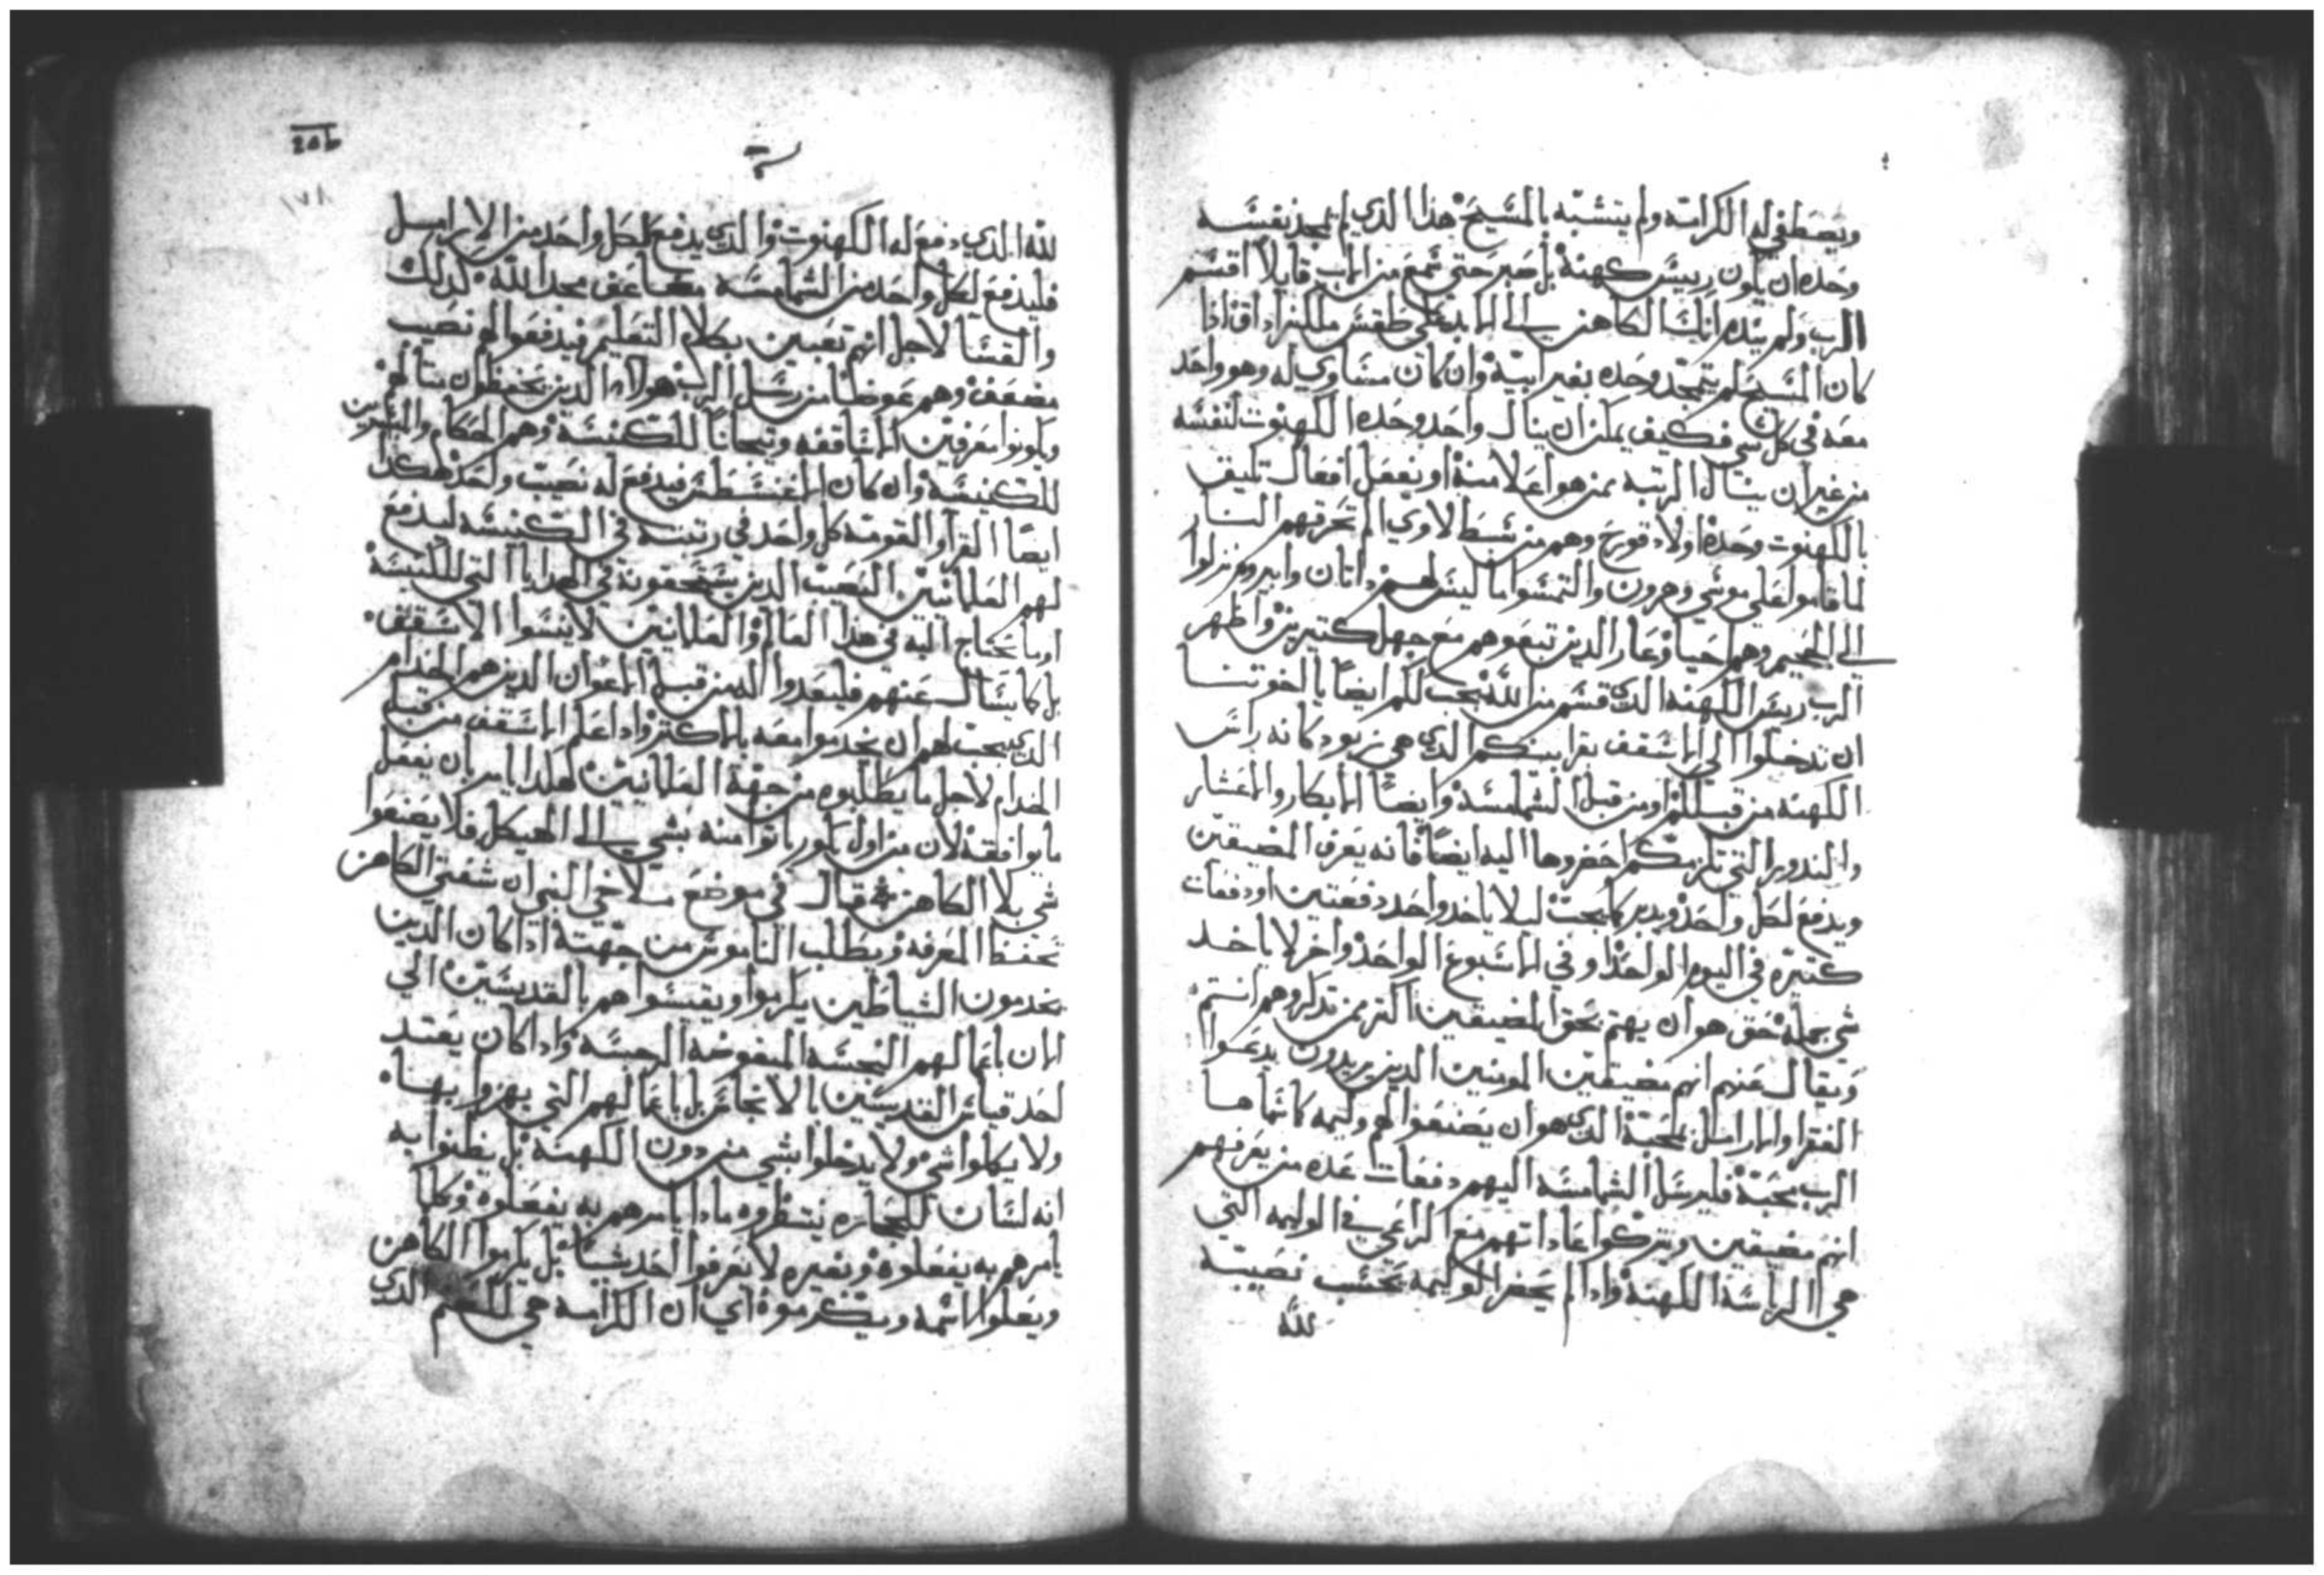 ويصطفي له الكرامة ولم يتشبه بالمسيح هذا الذي لم يمجد نفسه
وحده ان يكون رييس كهنة بل صبر حتي سمع من الاب قايلا اقسم
الرب ولم يندم انك الكاهن الي الابد علي طقس ملكيزاداق فاذا
كان المسيح لم يتمجد وحده بغير ابيه وان كان متساوي له وهو واحد
معه في كل شي فكيف يمكن ان ينال واحد وحده الكهنوت لنفسه
من غير ان ينال الرتبه ممن هو اعلا منه او يفعل افعال تليق
بالكهنوت وحده اولاد قورح وهم من سبط لاوي الم تحرقهم النار
لما قاموا علي موسي وهرون والتمسوا ما ليس لهم داتان وابيروم نزلوا
الي الجحيم وهم احيا وعار الدين تبعوهم مع جهل كتيرين واظهر
الرب رييس الكهنه الدي قسم من الله يجب لكم ايضا يا اخوتنا
ان تدخلوا الي الاسقف بقرابينكم الدي هي زبود كانه رايس
الكهنه من قبلكم او من قبل الشمامسه وايضا الابكار والاعشار
والندور التي تلزمكم احضروها اليه ايضا فانه يعرف المضيقين
ويدفع لكل واحد ويدبر كما يجب ليلا ياخد واحد دفعتين او دفعات
كتيره في اليوم الواحد او في الاسبوع الواحد واخر لا ياخد
شي بجملة حق هو ان يهتم بحق المضيقين اكتر من تدكروهم انتم
ويقال عنهم انهم مضيقين المومنين الدين يريدون يدعوا
الفقرا والارامل لمحبة الدي هو ان يصنعوا لهم وليمه كاسماها
الرب محبة فليرسل الشمامسه اليهم دفعات عده من يعرفهم
انهم مضيقين ويتركوا عاداتهم مع الراعي في الوليمه التي
هي الراسة الكهنة وادا لم يحضر الوليمه يحسب نصيبه
لله
لله الدي دفع له الكهنوت والدي يدفع لكل واحد من الارامل
فليدفع لكل واحد من الشمامسه مضاعف مجدا لله كدلك
والقسا لاجل انهم تعبين بكلام التعليم فيدفعوا لهم نصيب
مضعف وهم عوضا من رسل الرب هولاء الدين يحفظون مثالهم
ويكونوا معرفين الاساقفه وتيجانا للكنيسة وهم الحكام والمشيرين
للكنيسه وان كان اغنسطس فيدفع له نصيب واحد هكدا
ايضا القرا والقومه كل واحد في رتبته في الكنيسه ليدفع
لهم العلمانيين النصيب الدين يستحقونه في الهدايا التي للكنيسة
او ما يحتاج اليه في هذا العالم والعلمانيين لا ينسوا الاسقف
بل كما يسال عنهم فليعدوا اليه من قبل الاعوان الدين هم الخدام
الدي يجب لهم ان يخدموا معه بالاكتر وادا علم الاسقف من قبل
الخدام لاجل ما يطلبوه من جهة العلمانيين هكدا يامر بان يفعل
ما يوافقه لان من اول يكور ياتوا منه بشي الي الهيكل فلا يصنعوا
شي بلا الكاهن قال في موضع ملاخي النبي ان شفتي الكاهن
تحفظ المعرفه ويطلب الناموس من جهته ادا كان الدين
يخدمون الشياطين يكرموا ويقيسوا هم بالقديسين الي
الان باعمالهم النجسه المبغوضة الرجسه وادا كان يعتد
احد قياس القديسين بالانجاس بل باعمالهم التي يهزوا بها
ولا ياكلوا شي ولا يدخلوا بشي من دون الكهنة بل يظنوا به
انه لسان للحجاره ينتظروه مادا يامرهم به يفعلوه وكلما
يامرهم به يفعلوه وبغيره لا يعرفوا احد شيا بل يكرموا الكاهن
ويعلوا اسمه ويكرموه اي ان الكرامه هي للصنم الدي